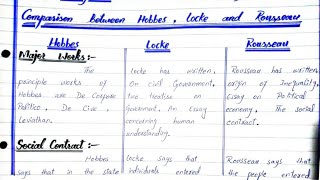 Comparison between Hobbes, Locke and Rousseau
Hobbes Locke Rousseau
Major Works :-
The Locke has written, Rousseau has written
principle works of On civil Government, origin of Inequality,
Hobbes are De Corpore two treatise on Essay on Political
Politico, De Cive, Government, An Essay economy, The social
Leviathan. concerning human contract.
understanding.
Social Contract :-
Hobbes Locke says that Rousseau says that
says that in the state individuals entered the people entered